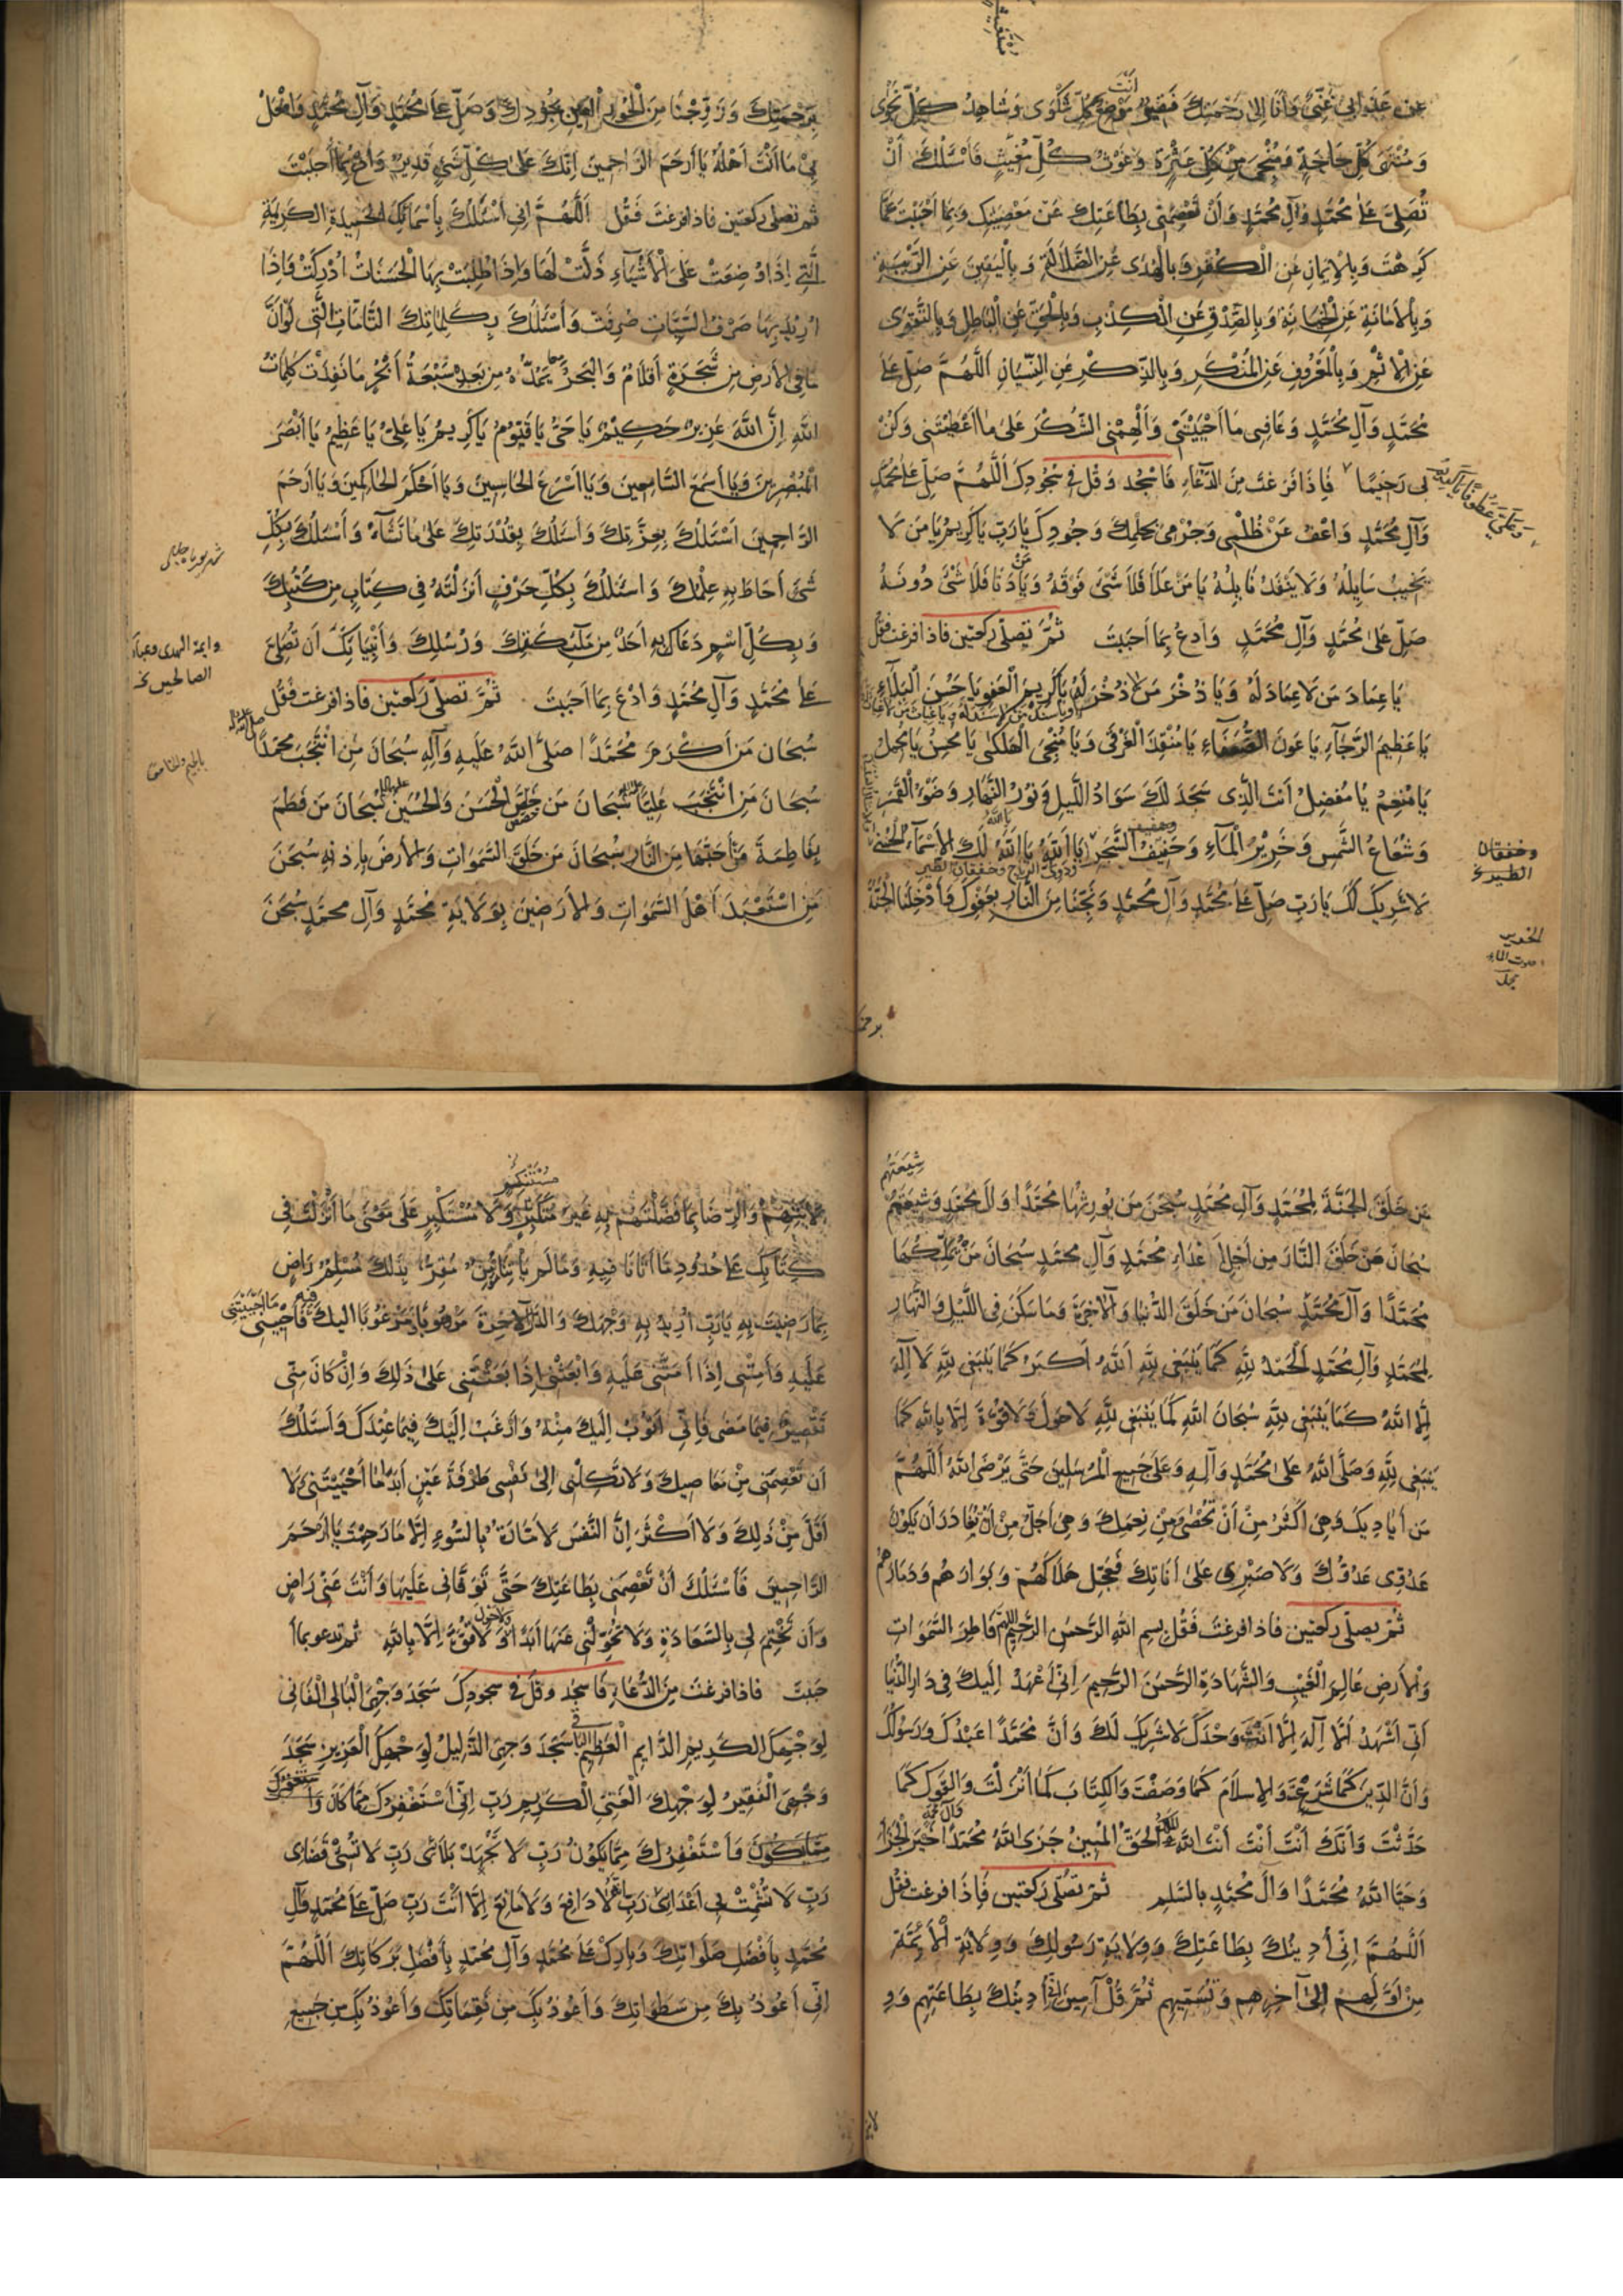 عن عذابى غنى وانا الى رحمتك فقير انت موضع كل شكوى وشاهد كل نجوى
ومنتهى كل حاجة ومنجى من كل عثرة وغوث كل مغيث فاسئلك ان
تصلى على محمد وآل محمد وان تعصمنى بطاعتك عن معصيتك وبما احببت عما
كرهت وبالايمان عن الكفر وبالهدى عن الضلالة وباليقين عن الريبة
وبالامانة عن الخيانة وبالصدق عن الكذب وبالحق عن الباطل وبالتقوى
عن الاثم وبالمعروف عن المنكر وبالذكر عن النسيان اللهم صل على
محمد وآل محمد وعافنى ما احييتنى والهمنى الشكر على ما اعطيتنى وكن
لى رحيما فاذا فرغت من الدعاء فاسجد وقل فى سجودك اللهم صل على محمد
وآل محمد واعف عن ظلمى وجرمى بحلمك وجودك يا رب يا كريم يا من لا
يخيب سايله ولا ينفد نايله يا من علا فلا شىء فوقه ويا من دنا فلا شىء دونه
صل على محمد وآل محمد وادع بما احببت ثم تصلى ركعتين فاذا فرغت فقل
يا عماد من لا عماد له ويا ذخر من لا ذخر له يا كريم العفو يا حسن البلاء
ويا سند من لا سند له ويا غياث من لا غياث له
يا عظيم الرجاء يا عون الضعفاء يا منقذ الغرقى ويا منجى الهلكى يا محسن يا مجمل
يا منعم يا مفضل انت الذى سجد لك سواد الليل ونور النهار وضوء القمر
وشعاع الشمس وخرير الماء وحفيف الشجر يا الله يا الله لك الاسماء الحسنى
ودوى الرياح وخفقان الطير
لا شريك لك يا رب صل على محمد وآل محمد ونجنا من النار بعفوك وادخلنا الجنة
وخفقان
الطير خ
برحمتك
برحمتك وزوجنا من الحور العين بجودك وصل على محمد وآل محمد وافعل
بى ما انت اهله يا ارحم الراحمين انك على كل شىء قدير وادع بما احببت
ثم تصلى ركعتين فاذا فرغت فقل اللهم انى اسئلك باسمائك الحميدة الكريمة
التى اذا وضعت على الاشياء ذلت لها واذا طلبت بها الحسنات ادركت واذا
اريد بها صرف السيئات صرفت واسئلك بكلماتك التامات التى لو ان
ما فى الارض من شجرة اقلام والبحر يمده من بعده سبعة ابحر ما نفدت كلمات
الله ان الله عزيز حكيم يا حى يا قيوم يا كريم يا على يا عظيم يا ابصر
المبصرين ويا اسمع السامعين ويا اسرع الحاسبين ويا احكم الحاكمين ويا ارحم
الراحمين اسئلك بعزتك واسئلك بقدرتك على ما تشاء واسئلك بكل
شىء احاط به علمك واسئلك بكل حرف انزلته فى كتاب من كتبك
وبكل اسم دعاك به احد من ملئكتك ورسلك وانبيائك ان تصلى
على محمد وآل محمد وادع بما احببت ثم تصلى ركعتين فاذا فرغت فقل
سبحان من اكرم محمدا صلى الله عليه وآله سبحان من انتجب محمدا
سبحان من انتجب عليا سبحان من خص الحسن والحسين سبحان من فطم
بفاطمة من احبها من النار سبحان من خلق السموات والارض باذنه سبحن
من استعبد اهل السموات والارضين بولاية محمد وآل محمد سبحن
وائمة الهدى وعباد
الصالحين خ
شيعتهم
من خلق الجنة لمحمد وآل محمد سبحن من يورثها محمدا وآل محمد وشيعتهم
سبحان من خلق النار من اجل اعداء محمد وآل محمد سبحان من يملكها
محمدا وآل محمد سبحان من خلق الدنيا والآخرة وما سكن فى الليل والنهار
لمحمد وآل محمد الحمد لله كما ينبغى لله الله اكبر كما ينبغى لله لا اله
الا الله كما ينبغى لله سبحان الله كما ينبغى لله لا حول ولا قوة الا بالله كما
ينبغى لله وصلى الله على محمد وآله وعلى جميع المرسلين حتى يرضى الله اللهم
من اياديك وهى اكثر من ان تحصى ومن نعمك وهى اجل من ان تغادر ان يكون
عدوى عدوك ولا صبر لى على اناتك فعجل هلاكهم وبوارهم ودمارهم
ثم يصلى ركعتين فاذا فرغت فقل بسم الله الرحمن الرحيم اللهم فاطر السموات
والارض عالم الغيب والشهادة الرحمن الرحيم انى اعهد اليك فى دار الدنيا
انى اشهد ان لا اله الا انت وحدك لا شريك لك وان محمدا عبدك ورسولك
وان الدين كما شرعت والاسلام كما وصفت والكتاب كما انزلت والقول كما
حدثت وانك انت انت انت الله الحق المبين جزى الله محمدا خير الجزاء
وحيا الله محمدا وآل محمد بالسلم ثم تصلى ركعتين فاذا فرغت فقل
اللهم انى ادينك بطاعتك وولاية رسولك وولاية الائمة
من اولهم الى آخرهم وتسميهم ثم قل آمين ادينك بطاعتهم وو
مستنكر
لايتهم والرضا بما فضلتهم به غير متكبر ولا مستكبر على معنى ما انزلت فى
كتابك على حدود ما اتانا فيه وما لم ياتنا مؤمن مقر بذلك مسلم راض
بما رضيت به يا رب اريد به وجهك والدار الآخرة مرهوبا ومرغوبا اليك فيه فاحينى ما احييتنى
عليه وامتنى اذا امتنى عليه وابعثنى اذا بعثتنى على ذلك وان كان منى
تقصير فيما مضى فانى اتوب اليك منه وارغب اليك فيما عندك واسئلك
ان تعصمنى من معاصيك ولا تكلنى الى نفسى طرفة عين ابدا ما احييتنى لا
اقل من ذلك ولا اكثر ان النفس لامارة بالسوء الا ما رحمت يا ارحم
الراحمين فاسئلك ان تعصمنى بطاعتك حتى توفانى عليها وانت عنى راض
وان تختم لى بالسعادة ولا تحولنى عنها ابدا ولا قوة الا بالله ثم تدعو بما ا
حببت فاذا فرغت من الدعاء فاسجد وقل فى سجودك سجد وجهى البالى الفانى
لوجهك الكريم الدايم الباقى العظيم سجد وجهى الذليل لوجهك العزيز سجد
وجهى الفقير لوجهك الغنى الكريم رب انى استغفرك مما كان
واستغفرك مما يكون رب لا تجهد بلائى رب لا تسئ قضائى
رب لا تشمت بى اعدائى رب انه لا دافع ولا مانع الا انت رب صل على محمد وآل
محمد بافضل صلواتك وبارك على محمد وآل محمد بافضل بركاتك اللهم
انى اعوذ بك من سطواتك واعوذ بك من نقماتك واعوذ بك من جميع